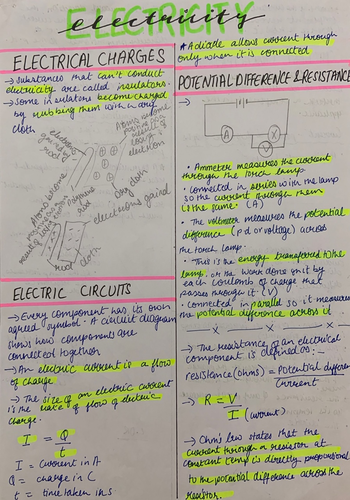 ELECTRICITY
electricity
ELECTRICAL CHARGES
→ Substances that can't conduct
electricity are called insulators.
→ Some insulators become charged
by rubbing them with a dry
cloth
electrons
gained
rod
dry cloth
electrons gained
rod
cloth
ELECTRIC CIRCUITS
→ Every component has its own
agreed symbol. A circuit diagram
shows how components are
connected together
→ An electric current is a flow
of charge
→ The size of an electric current
is the rate of flow of electric
charge.
I = Q
t
I = Current in A
Q = charge in C
t = time taken in s
* A diode allows current through
only when it is connected
POTENTIAL DIFFERENCE & RESISTANCE
→
A
X
V
• Ammeter measures the current
through the torch lamp.
• connected in series with the lamp
so the current through them
is the same. (A)
• The voltmeter measures the potential
difference (pd or voltage) across
the torch lamp.
• This is the energy transferred to the
lamp, or the work done on it by
each coulomb of charge that
passes through it (V)
• connected in parallel so it measures
the potential difference across it
x x x
→ The resistance of an electrical
component is defined as:-
resistance (ohms) = Potential difference
Current
→ R = V
I (current)
→ Ohm's law states that the
current through a resistor at
constant temp is directly proportional
to the potential difference across the
resistor.